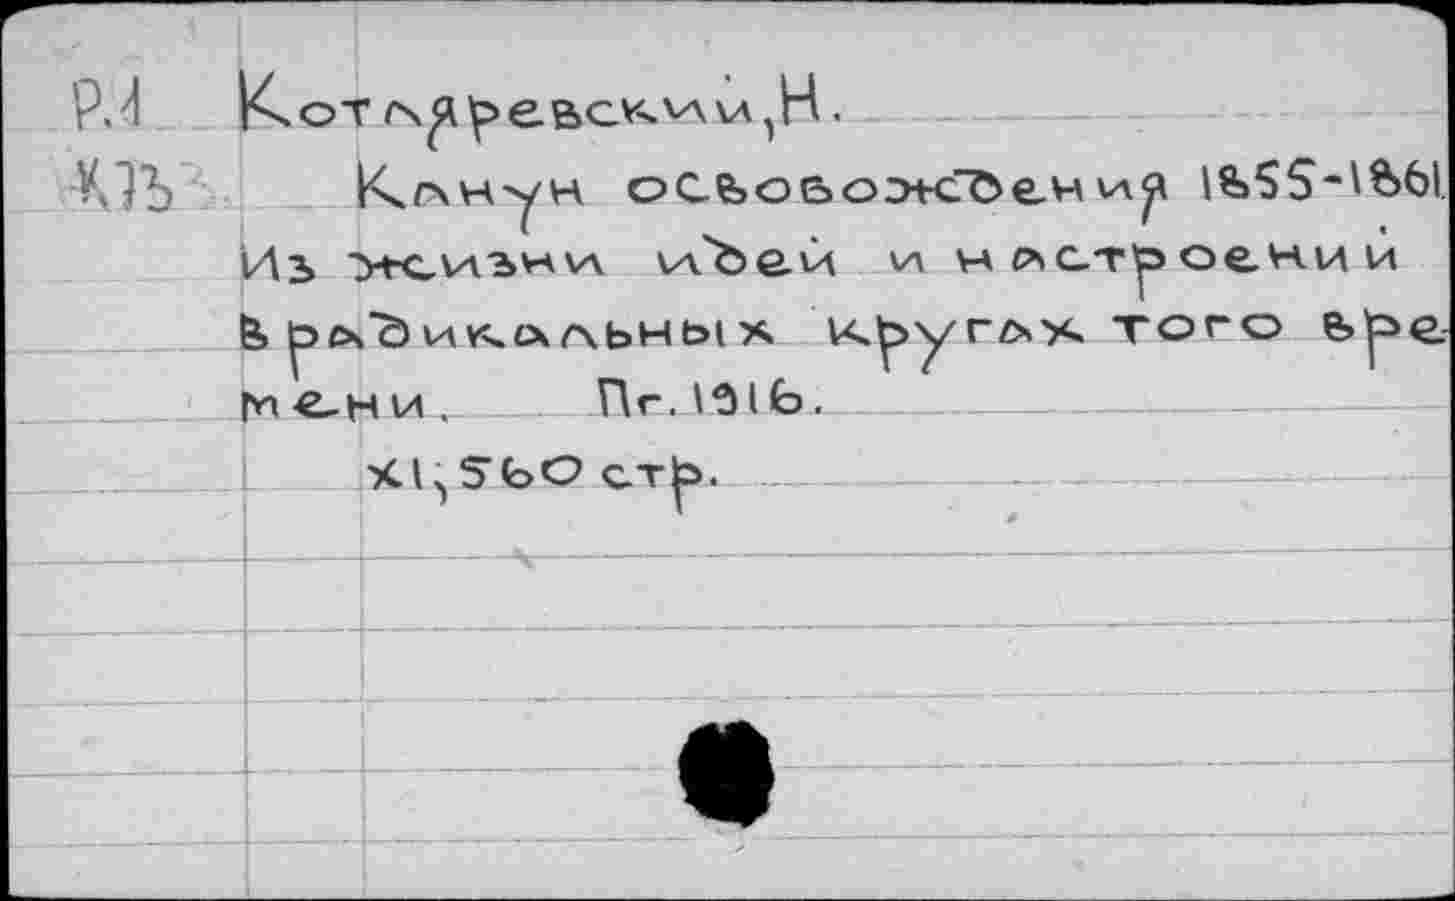 Р.1 Котляревский, Н.
К73 Канун освобождения 1855-1861.
Из жизни идей и настроений
в радикальных кругах того вре
мени. Пг. 1916.
XI, 560 стр.